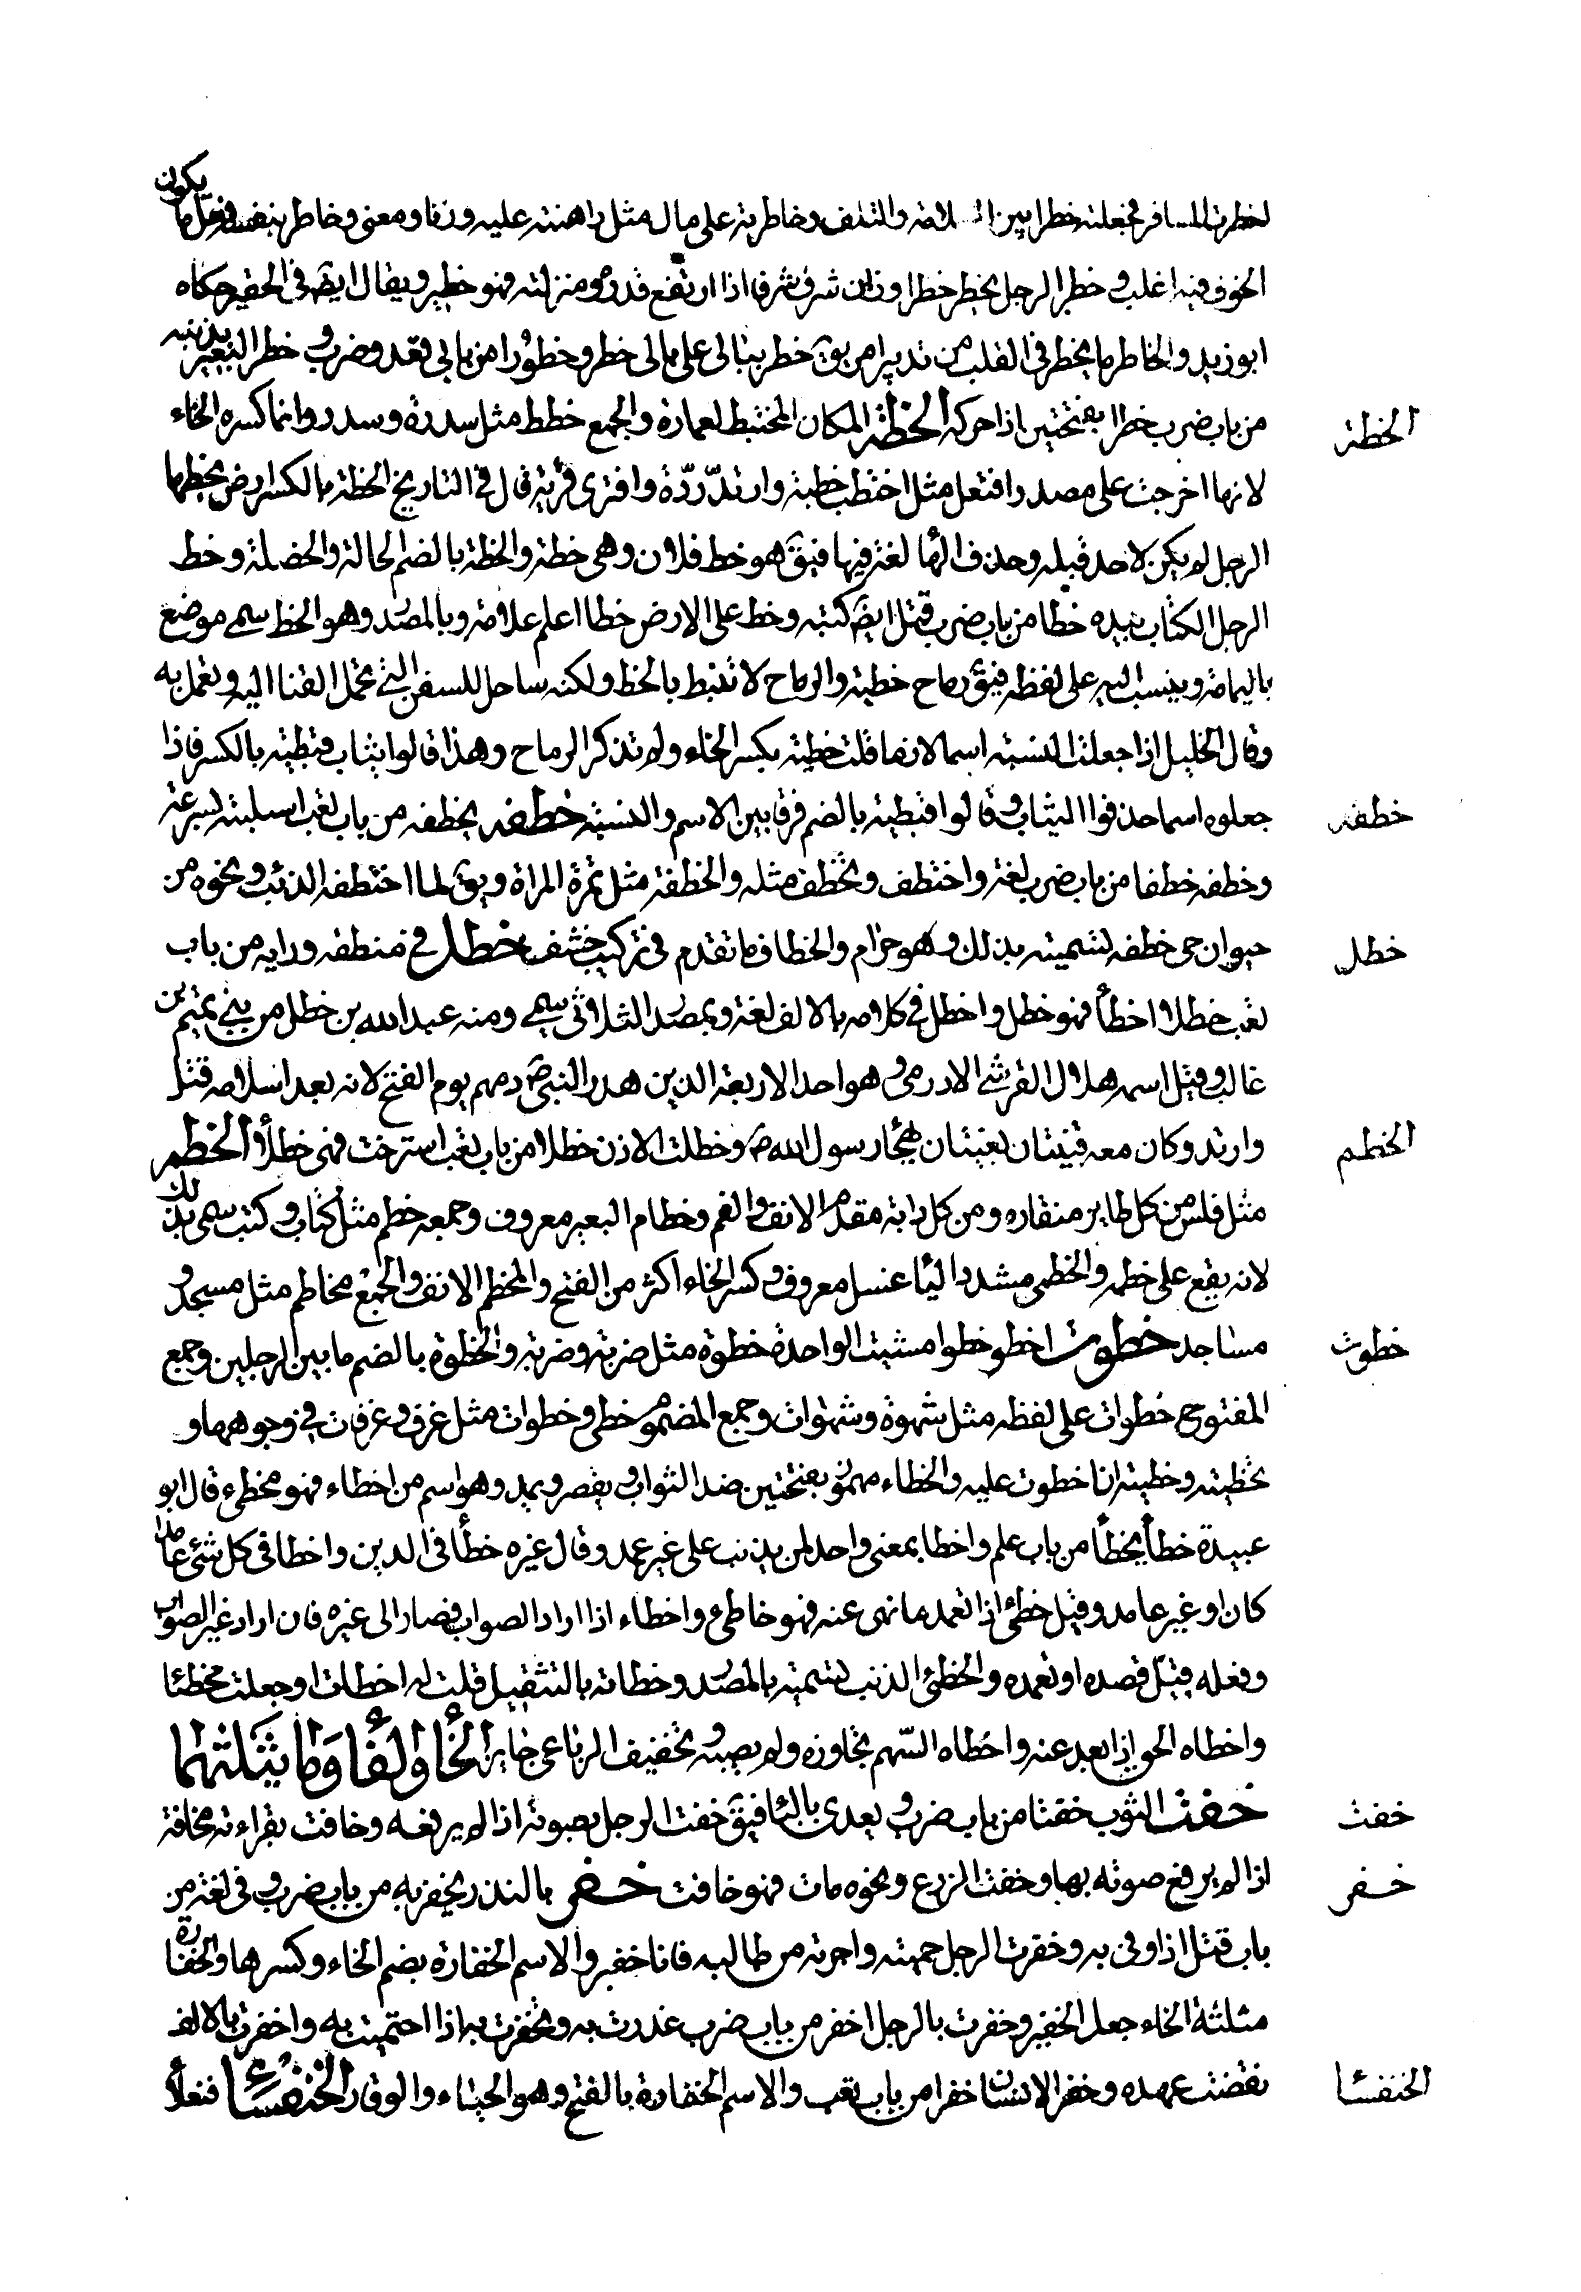 لخطر المسافر فجعلته خطرا بين السلامة والتلف وخاطرته على مال مثل راهنته عليه وزنا ومعنى وخاطر بنفسه فعل ما يكون
الخوف فيه اغلب و خطر الرجل يخطر خطرا وزان شرف شرفا اذا ارتفع قدره ومنزلته فهو خطير ويقال ايضا في الحقير حكاه
ابو زيد والخاطر ما يخطر في القلب من تدبير امر يق خطر ببالى على بالى خطر وخطورا من بابى قعد وضرب و خطر البعير بذنبه
من باب ضرب خطرا بفتحتين اذا حركه الخطة المكان المختط لعمارة والجمع خطط مثل سدرة وسدر وانما كسره الخاء
الخطة
لانها اخرجت على مصدر افتعل مثل اختطب خطبة وارتد ردّة وافترى فرية قال في التاريخ الخطة بالكسر ارض يخطها
الرجل لم يكن لاحد قبله وحذف الها لغة فيها فيق هو خط فلان وهى خطة والخطة بالضم الحالة والخصلة وخط
الرجل الكتاب بيده خطا من باب ضرب قتل ايض كتبه وخط على الارض خطا اعلم علامة وبالمصدر وهو الخط سمى موضع
باليمامة وينسب اليه على لفظه فيق رماح خطية والرماح لا تنبط بالخط ولكنه ساحل للسفن التى تحمل القنا اليه وتعمل به
وقال الخليل اذا جعلت النسبة اسما لازما قلت خطية بكسر الخاء ولم تذكر الرماح وهذا قالوا ثياب قبطية بالكسر فاذا
جعلوه اسما حذفوا الثياب وقالوا قبطية بالضم فرقا بين الاسم والنسبة خطفه يخطفه من باب تعب استلبته بسرعة
خطفه
وخطفه خطفا من باب ضرب لغة واختطف وتخطف مثله والخطفة مثل تمرة المراة ويق لما اختطفه الذئب ونحوه من
حيوان حى خطفه تسميته بذلك وهو حرام والخطاف ما تقدم في تركيب خشف خطل في منطقه ورايه من باب
خطل
تعب خطلا اخطأ فهو خطل واخطل في كلامه بالالف لغة وبمصدر الثلاثى سمى ومنه عبد الله بن خطل من بنى تميم بن
غالب وقيل اسمه هلال القرشى الادرمى و هو احد الاربعة الذين هدر النبى ص دمهم يوم الفتح لانه بعد اسلامه قتل
وارتد وكان معه قينتان تغنيتان بهجار رسول الله ص وخطلت الاذن خطلا من باب تعب استرخت فهى خطلأ الخطم
الخطم
مثل فلس من كل طاير منقاره ومن كل دابة مقدم الانف والفم وخطام البعير معروف وجمعه خطم مثل كتاب و كتب سمى بذلك
لانه يقع على خطمه والخطمى مشدد اليأ غسل معروف وكسر الخاء اكثر من الفتح والمخطم الانف والجمع مخاطم مثل مسجد و
مساجد خطوت اخطو خطوا مشيت الواحدة خطوة مثل ضربة وضربة والخطوة بالضم ما بين الرجلين وجمع
خطوت
المفتوح خطوات على لفظه مثل شهوة وشهوات وجمع المضموم خطى وخطوات مثل غرف وغرفات في وجوهها و
تخطيته وخطيته اذا خطوت عليه والخطاء مهموز بفتحتين ضد الثواب ويقصر ويمد وهو اسم من اخطاء فهو مخطئ قال ابو
عبيدة خطأ يخطأ من باب علم واخطا بمعنى واحد لمن يذنب على غير عمد وقال غيره خطأ في الدين واخطا في كل شئ عامدا
كان او غير عامد وقيل خطئ اذا تعمد ما نهى عنه فهو خاطئ واخطاء اذا اراد الصواب فصار الى غيره فان اراد غير الصواب
وفعله قيل قصده او تعمده والخطئ الذنب تسمية بالمصدر وخطاته بالتثقيل قلت له اخطات او جعلت مخطئا
واخطاه الحق اذا بعد عنه واخطاه السّهم تجاوزه ولم يصبه و تخفيف الرباعى جايز الخأ والفا وما يثلثهما
خفت الثوب خفتا من باب ضرب و يعدى بالبأ فيق خفت الرجل بصوته اذا لم يرفعه وخافت بقراءته مخافتة
خفت
اذا لم يرفع صوته بها وخفت الزرع ونحوه مات فهو خافت خفر بالنذر يخفر به من باب ضرب وفى لغة من
خفر
باب قتل اذا وفى به وخفرت الرجل حميته واجرته من طالبه فانا خفير والاسم الخفارة بضم الخاء وكسرها والخفارة
مثلثة الخاء جعل الخفير وخفرت بالرجل اخفر من باب ضرب غدرت به وتخفرت به اذا احتميت به واخفرت بالالف
نقضت عهده وخفر الانسان خفرا من باب تعب والاسم الخفارة بالفتح وهو الحياء والوقار الخنفسأ فنعلأ
الخنفسا